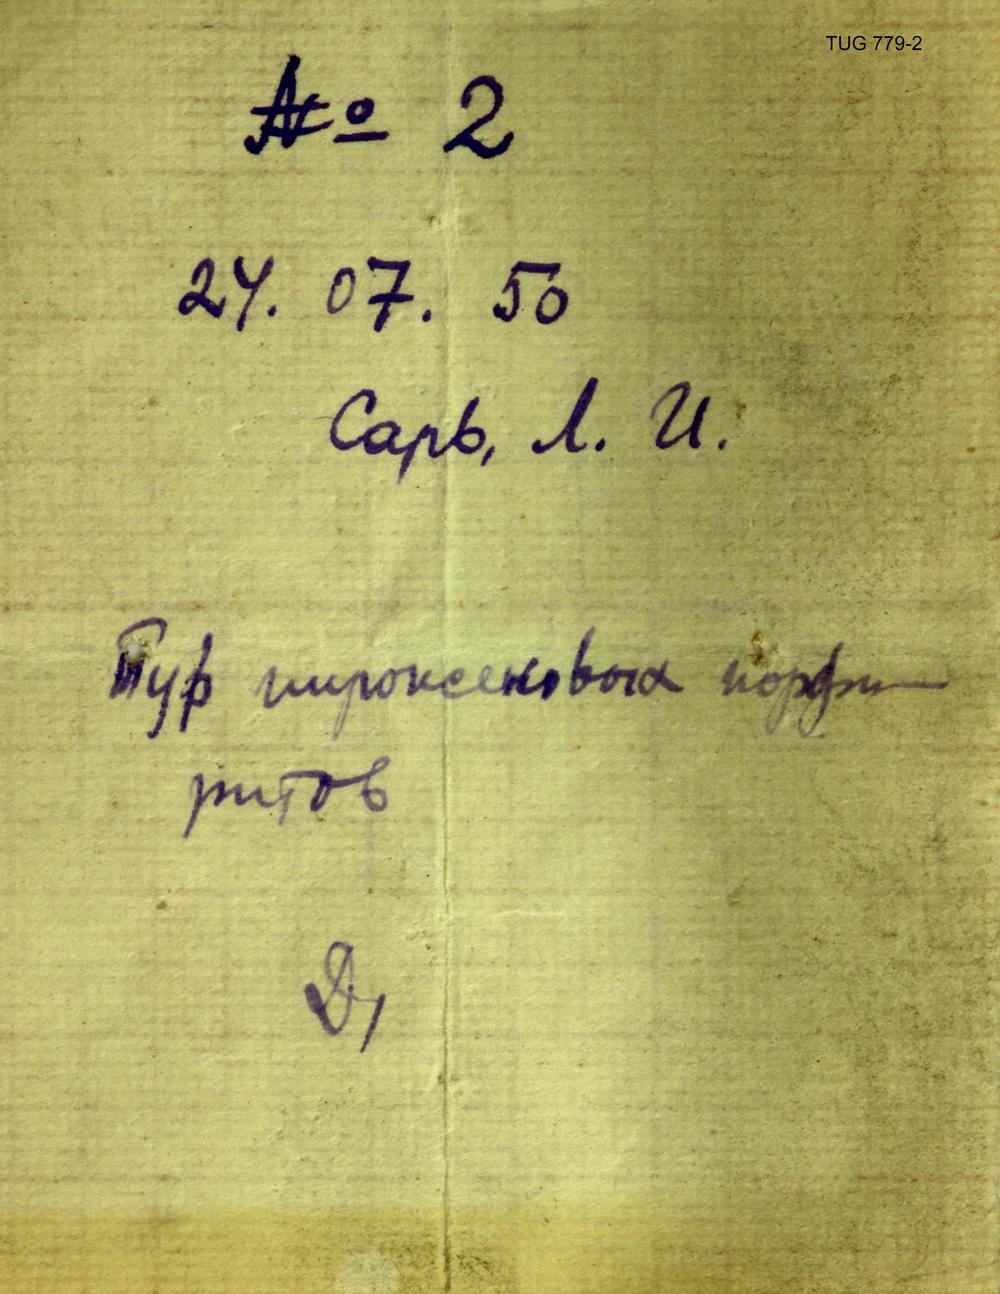 TUG 779-2
№ 2
24. 07. 50
Сарв, Л. И.
Туф пироксеновых порфи-
ритов
D1